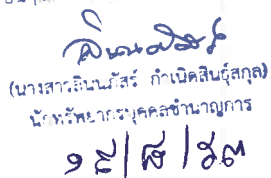 (นางสาวลินนภัสร์ กำเนิดสินธุ์สกุล)
นักทรัพยากรบุคคลชำนาญการ
๑๙/๘/๖๓